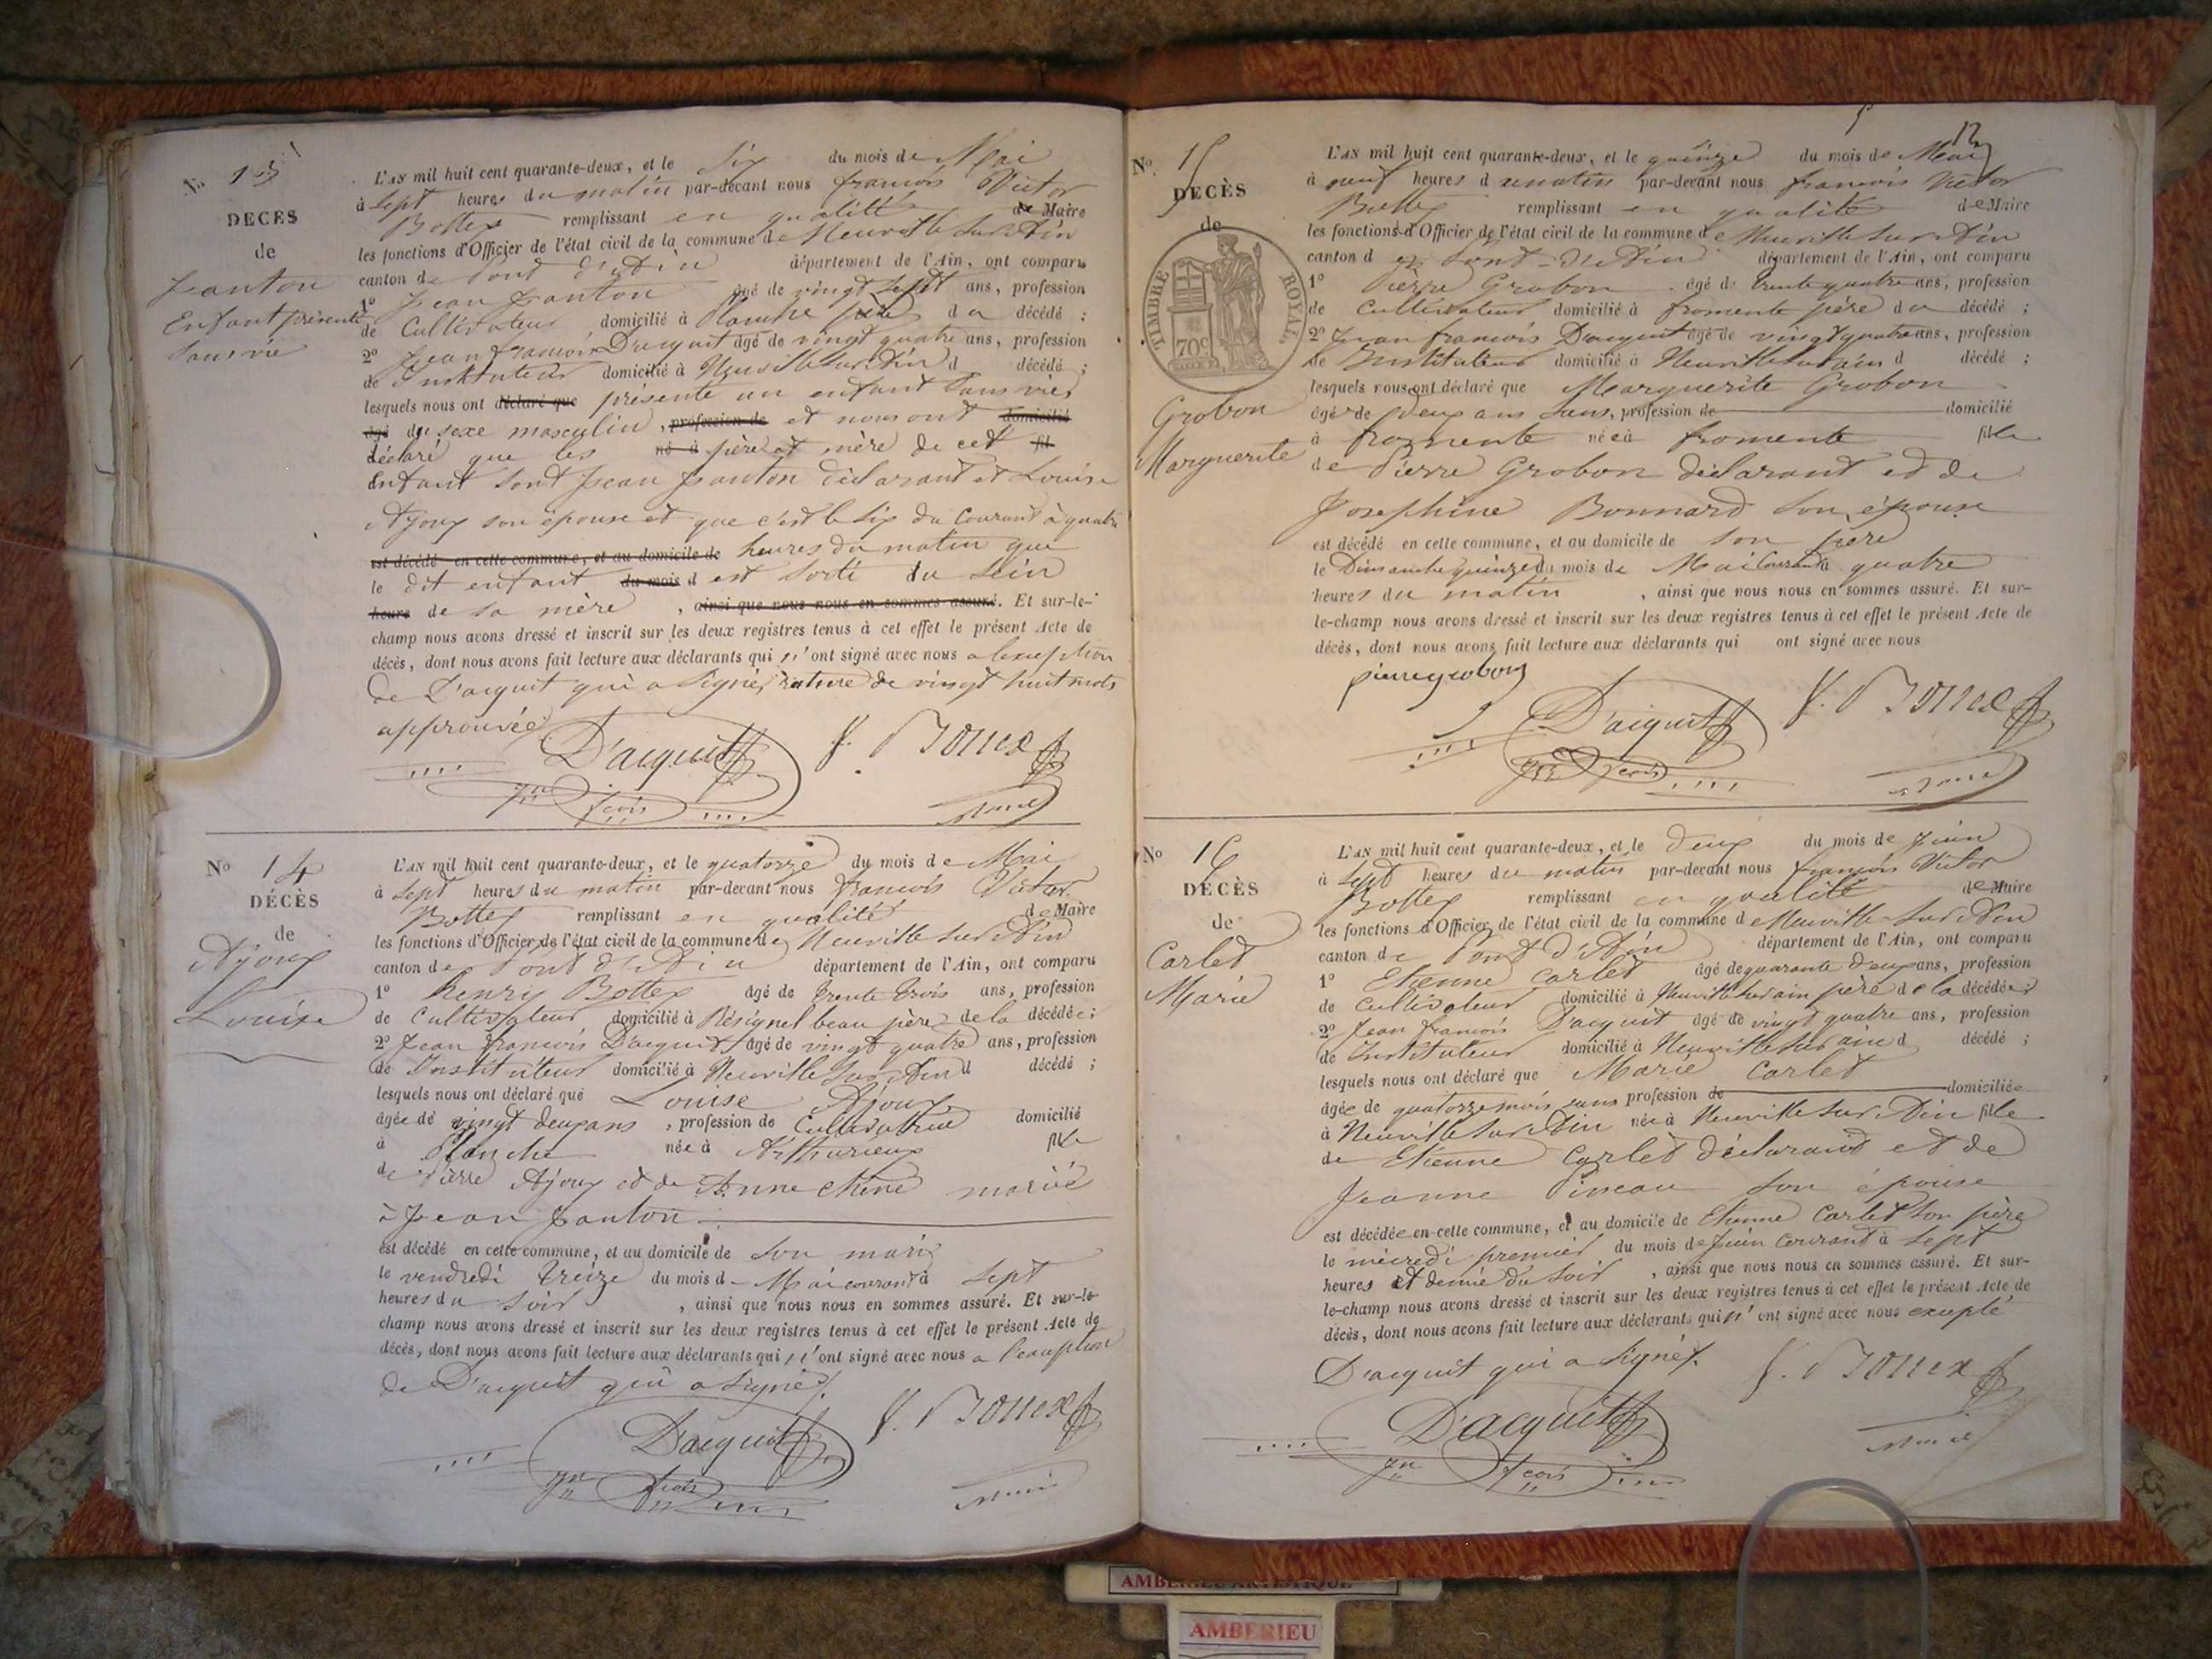 No 13
DÉCÈS
de
Janton
Enfant présenté
sans vie
L'AN mil huit cent quarante-deux, et le Six du mois de Mai
à Sept heures du matin par-devant nous françois Victor
Bottex remplissant en qualité de Maire
les fonctions d'Officier de l'état civil de la commune de Neuville sur Ain
canton de Pont d'Ain département de l'Ain, ont comparu
1º Jean Janton âgé de vingt sept ans, profession
de Cultivateur domicilié à Planche père du décédé ;
2º Jean françois D'acquit âgé de vingt quatre ans, profession
de Instituteur domicilié à Neuville sur Ain d décédé ;
lesquels nous ont déclaré que présenté un enfant sans vie
âgé du sexe masculin, profession de et nous ont domicilié
déclaré que les né à père et mère de cet fil
Enfant sont Jean Janton déclarant et Louise
Ajoux son épouse et que c'est le Six du Courant à quatre
est décédé en cette commune, et au domicile de heures du matin que
le dit enfant du mois d est sorti du sein
heure de sa mère, ainsi que nous nous en sommes assuré. Et sur-le-
champ nous avons dressé et inscrit sur les deux registres tenus à cet effet le présent Acte de
décès, dont nous avons fait lecture aux déclarants qui n'ont signé avec nous a l'exception
de D'acquit qui a signé, rature de vingt huit mots
approuvée
D'acquit f. Bottex
jn fcois maire
No 14
DÉCÈS
de
Ajoux
Louise
L'AN mil huit cent quarante-deux, et le quatorze du mois de Mai
à Sept heures du matin par-devant nous françois Victor
Bottex remplissant en qualité de Maire
les fonctions d'Officier de l'état civil de la commune de Neuville sur Ain
canton de Pont d'Ain département de l'Ain, ont comparu
1º henry Bottex âgé de trente trois ans, profession
de Cultivateur domicilié à Résignel beau père de la décédée ;
2º Jean françois D'acquit âgé de vingt quatre ans, profession
de Instituteur domicilié à Neuville sur Ain d décédé ;
lesquels nous ont déclaré que Louise Ajoux
âgée de vingt deux ans, profession de Cultivatrice domicilié
à Planche née à St hurieux fille
de Pierre Ajoux et de Anne Chêne mariée
à Jean Janton
est décédé en cette commune, et au domicile de son mari
le vendredi treize du mois de Mai courant à Sept
heures du soir, ainsi que nous nous en sommes assuré. Et sur-le-
champ nous avons dressé et inscrit sur les deux registres tenus à cet effet le présent Acte de
décès, dont nous avons fait lecture aux déclarants qui n'ont signé avec nous a l'exception
de D'acquit qui a signé.
D'acquit f. Bottex
jn fcois maire
12
No 15
DÉCÈS
de
TIMBRE ROYAL
70c
Grobon
Marguerite
L'AN mil huit cent quarante-deux, et le quinze du mois de Mai
à neuf heures du matin par-devant nous françois Victor
Bottex remplissant en qualité de Maire
les fonctions d'Officier de l'état civil de la commune de Neuville sur Ain
canton de Pont-d'Ain département de l'Ain, ont comparu
1º Pierre Grobon âgé de trente quatre ans, profession
de Cultivateur domicilié à fromente père du décédé ;
2º Jean françois D'acquit âgé de vingt quatre ans, profession
de Instituteur domicilié à Neuville sur ain d décédé ;
lesquels nous ont déclaré que Marguerite Grobon
âgé de deux ans sans, profession de domicilié
à fromente née à fromente fille
de Pierre Grobon déclarant et de
Josephine Bonnard son épouse
est décédé en cette commune, et au domicile de son père
le Dimanche quinze du mois de Mai Courant à quatre
heures du matin, ainsi que nous nous en sommes assuré. Et sur-
le-champ nous avons dressé et inscrit sur les deux registres tenus à cet effet le présent Acte de
décès, dont nous avons fait lecture aux déclarants qui ont signé avec nous
pierre grobon
D'acquit f. Bottex
jn fcois maire
No 16
DÉCÈS
de
Carlet
Marie
L'AN mil huit cent quarante-deux, et le deux du mois de Juin
à Sept heures du matin par-devant nous françois Victor
Bottex remplissant en qualité de Maire
les fonctions d'Officier de l'état civil de la commune de Neuville-sur Ain
canton de Pont d'Ain département de l'Ain, ont comparu
1º Etienne Carlet âgé de quarante deux ans, profession
de Cultivateur domicilié à Neuville sur ain père de la décédée ;
2º Jean françois D'acquit âgé de vingt quatre ans, profession
de Instituteur domicilié à Neuville sur ain d décédé ;
lesquels nous ont déclaré que Marie Carlet
âgée de quatorze mois sans profession de domiciliée
à Neuville sur Ain née à Neuville sur Ain fille
de Etienne Carlet déclarant et de
Jeanne Pineau son épouse
est décédée en cette commune, et au domicile de Etienne Carlet son père
le mecredi premier du mois de Juin courant à Sept
heures et demie du soir, ainsi que nous nous en sommes assuré. Et sur-
le-champ nous avons dressé et inscrit sur les deux registres tenus à cet effet le présent Acte de
décès, dont nous avons fait lecture aux déclarants qui n'ont signé avec nous excepté
D'acquit qui a signé.
D'acquit f. Bottex
jn fcois maire
AMBERIEU ARTISTIQUE
AMBERIEU